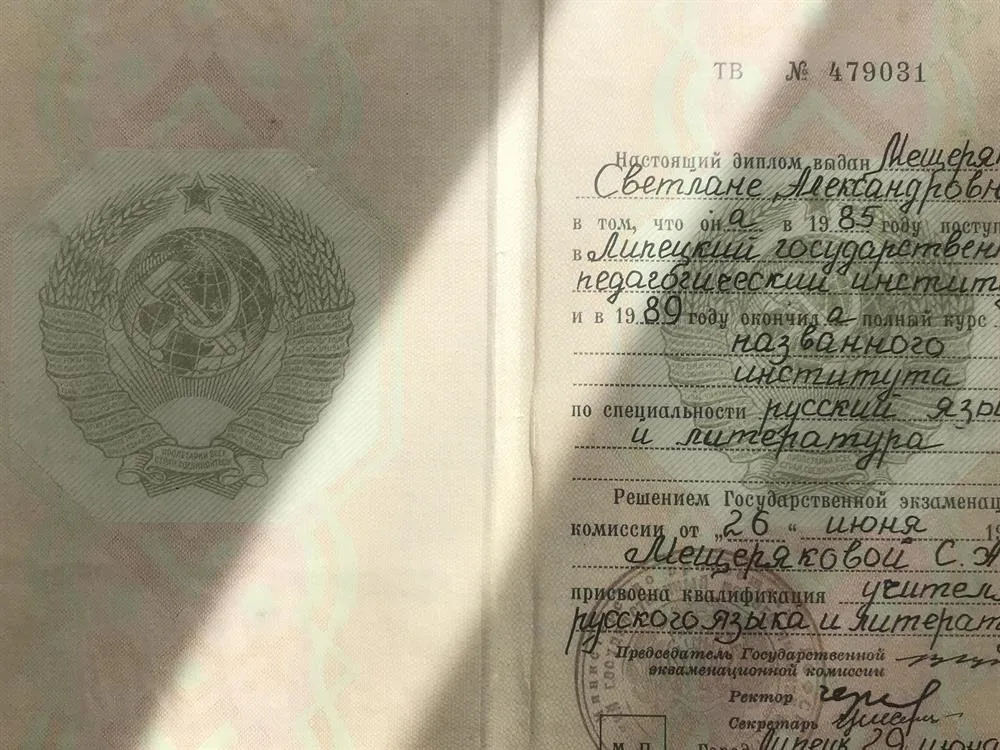 ПРОЛЕТАРИИ ВСЕХ
СТРАН, СОЕДИНЯЙТЕСЬ!
ТВ № 479031
Настоящий диплом выдан Мещеряк
Светлане Александровн
в том, что он а в 1985 году поступ
в Липецкий государственн
педагогический институ
и в 1989 году окончил а полный курс
названного
института
по специальности русский язы
и литература
Решением Государственной экзаменац
комиссии от „26“ июня 19
Мещеряковой С. А
присвоена квалификация учител
русского языка и литерат
Председатель Государственной
экзаменационной комиссии
Ректор
Секретарь
М. П. Город Липецк 29 июня